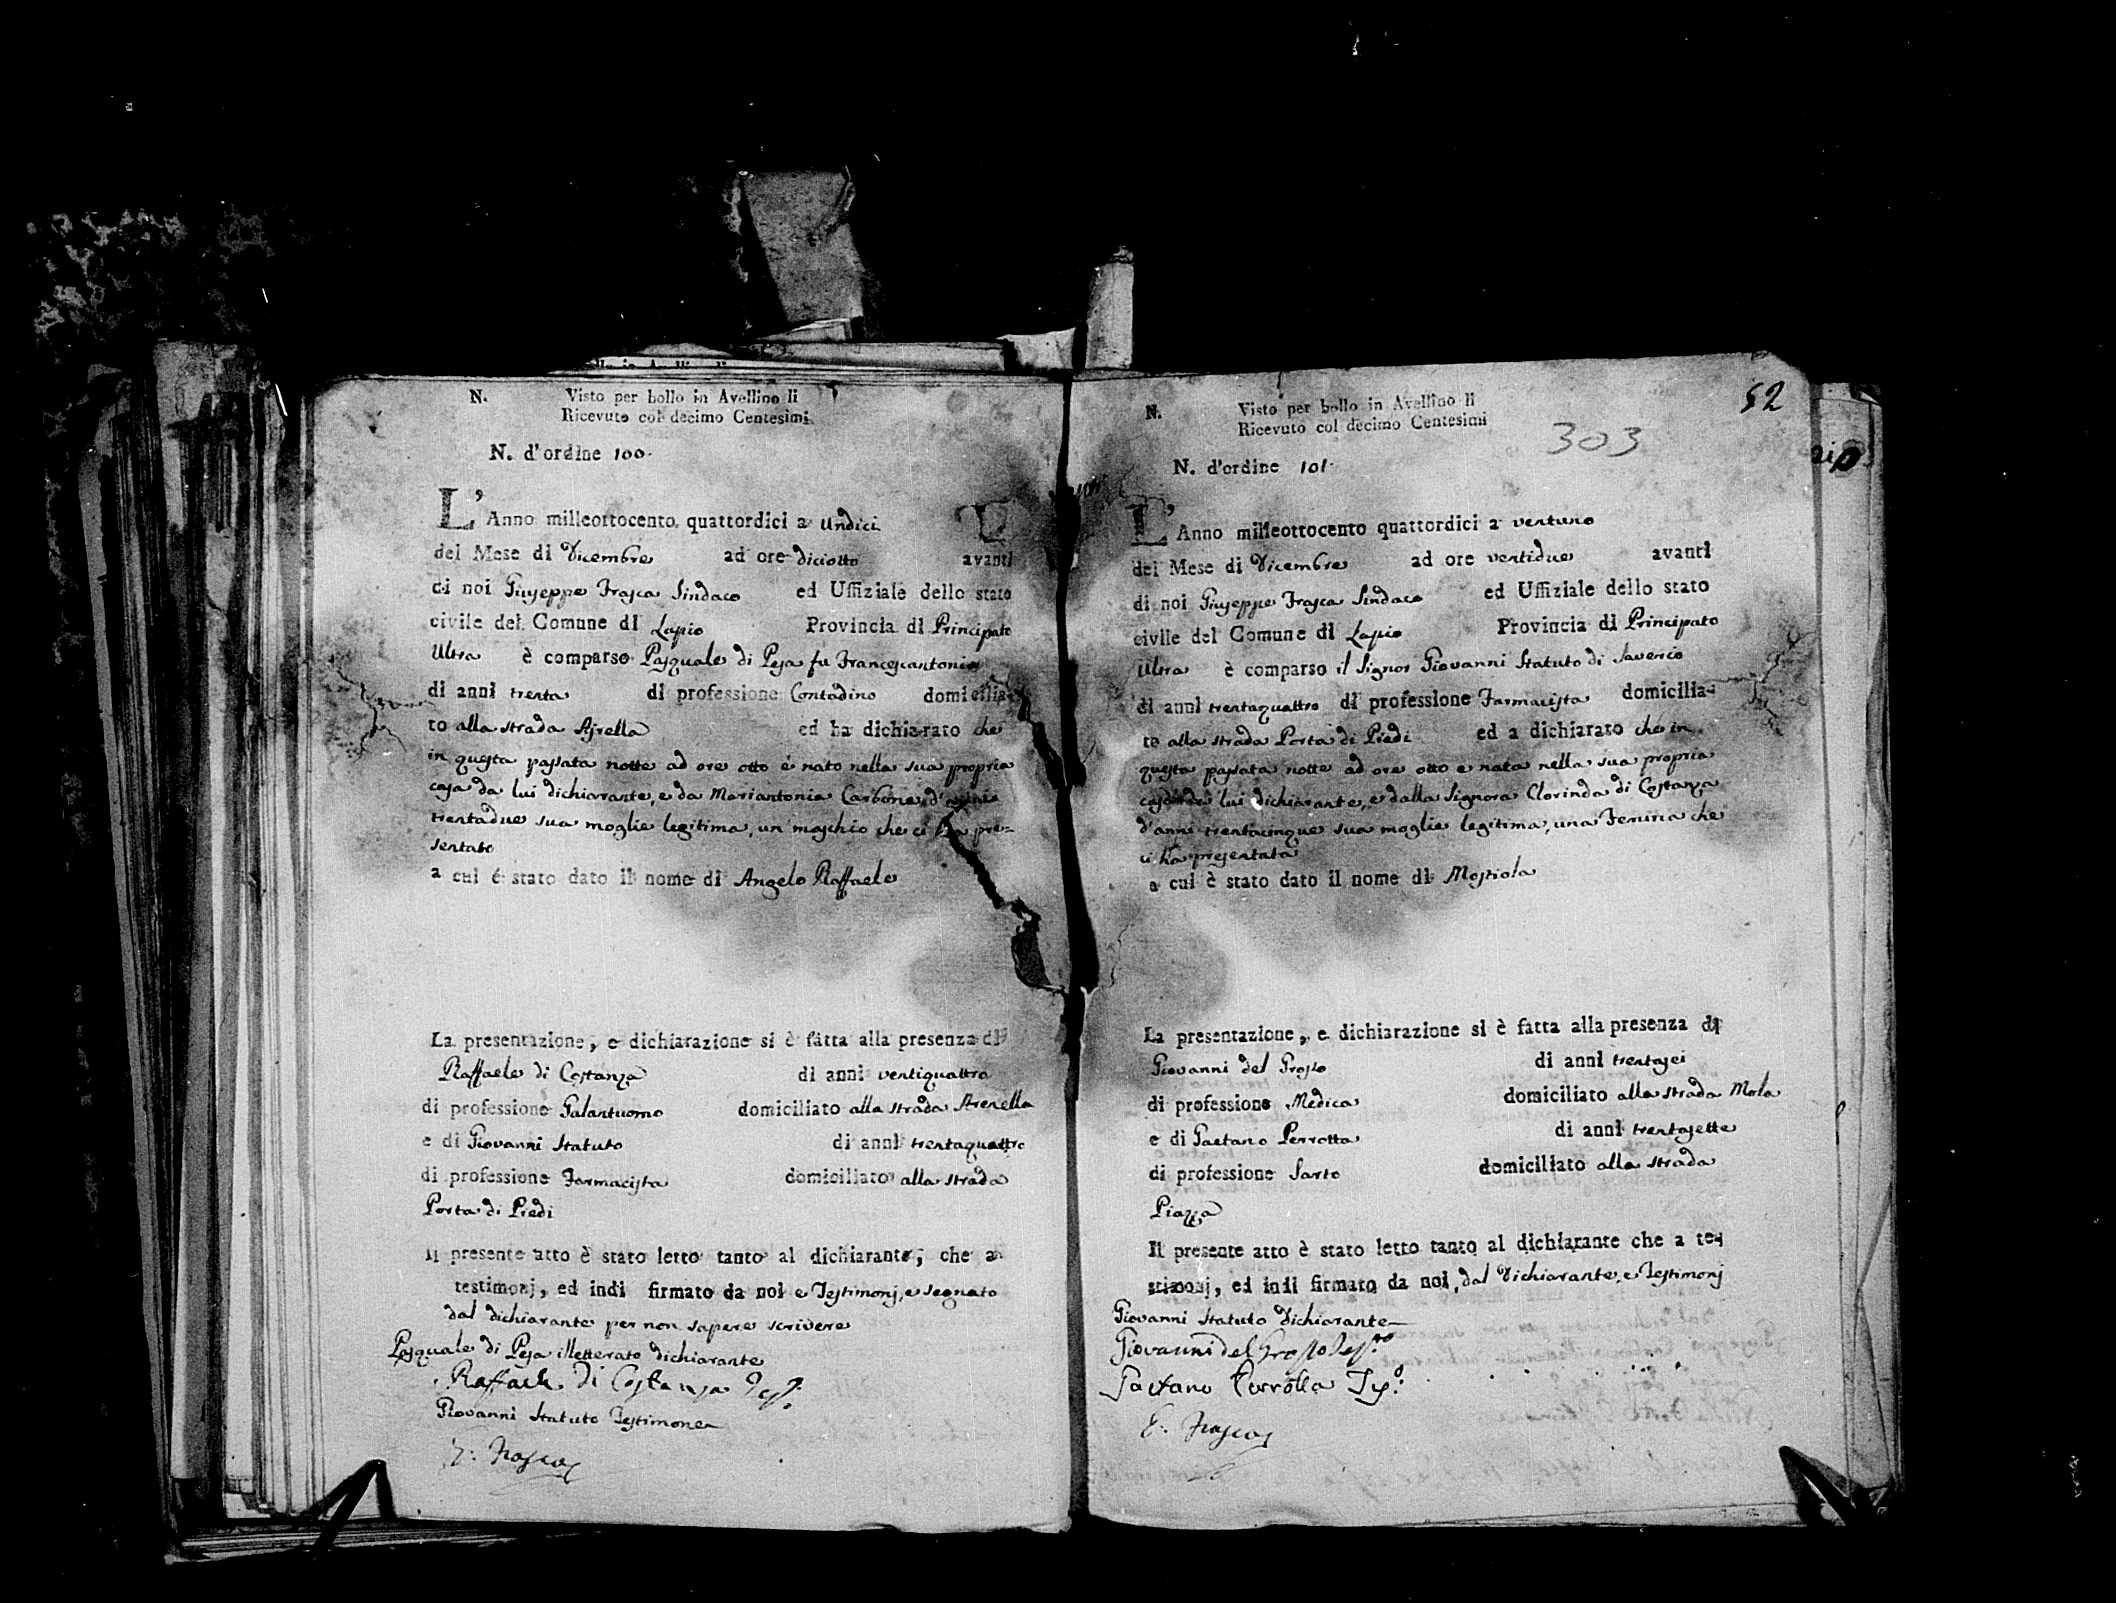 N.
Visto per bollo in Avellino li
Ricevuto col decimo Centesimi
N. d'ordine 100.
L'Anno milleottocento quattordici a undici
del Mese di Dicembre ad ore diciotto avanti
di noi Giuseppe Frasca Sindaco ed Uffiziale dello stato
civile del Comune di Lapio Provincia di Principato
Ultra è comparso Pasquale di Pesa fu Francescantonio
di anni trenta di professione Contadino domicilia-
to alla strada Ajrella ed ha dichiarato che
in questa passata notte ad ore otto è nato nella sua propria
casa da lui dichiarante, e da Mariantonia Carbone d'anni
trentadue sua moglie legitima, un maschio che ci ha pre-
sentato
a cui é stato dato il nome di Angelo Raffaele
La presentazione, e dichiarazione si è fatta alla presenza di
Raffaele di Costanza di anni ventiquattro
di professione Galantuomo domiciliato alla strada Arenella
e di Giovanni Statuto di anni trentaquattro
di professione Farmacista domiciliato alla strada
Porta di Piedi
Il presente atto è stato letto tanto al dichiarante, che a
testimonj, ed indi firmato da noi e Testimonj, e segnato
dal dichiarante per non sapere scrivere
Pasquale di Pesa illetterato dichiarante
Raffaele di Costanza Tes.
Giovanni Statuto Testimone
Frasca
52
N.
Visto per bollo in Avellino li
Ricevuto col decimo Centesimi
303
N. d'ordine 101.
L'Anno milleottocento quattordici a ventuno
del Mese di Dicembre ad ore ventidue avanti
di noi Giuseppe Frasca Sindaco ed Uffiziale dello stato
civile del Comune di Lapio Provincia di Principato
Ultra è comparso il Signor Giovanni Statuto di Saverio
di anni trentaquattro di professione Farmacista domicilia-
to alla strada Porta di Piedi ed a dichiarato che in
questa passata notte ad ore otto e nata nella sua propria
casa da lui dichiarante, e dalla Signora Clorinda di Costanza
d'anni trentacinque sua moglie legitima, una Femina che
ci ha presentata
a cui è stato dato il nome di Mostiola
La presentazione, e dichiarazione si è fatta alla presenza di
Giovanni del Grosso di anni trentasei
di professione Medico domiciliato alla strada Mola
e di Gaetano Perrotta di anni trentasette
di professione Sarto domiciliato alla strada
Piazza
Il presente atto è stato letto tanto al dichiarante che a te-
stimonj, ed indi firmato da noi, dal Dichiarante, e Testimonj
Giovanni Statuto Dichiarante
Giovanni del Grosso Tes.º
Gaetano Perrotta Tes.º
Frasca